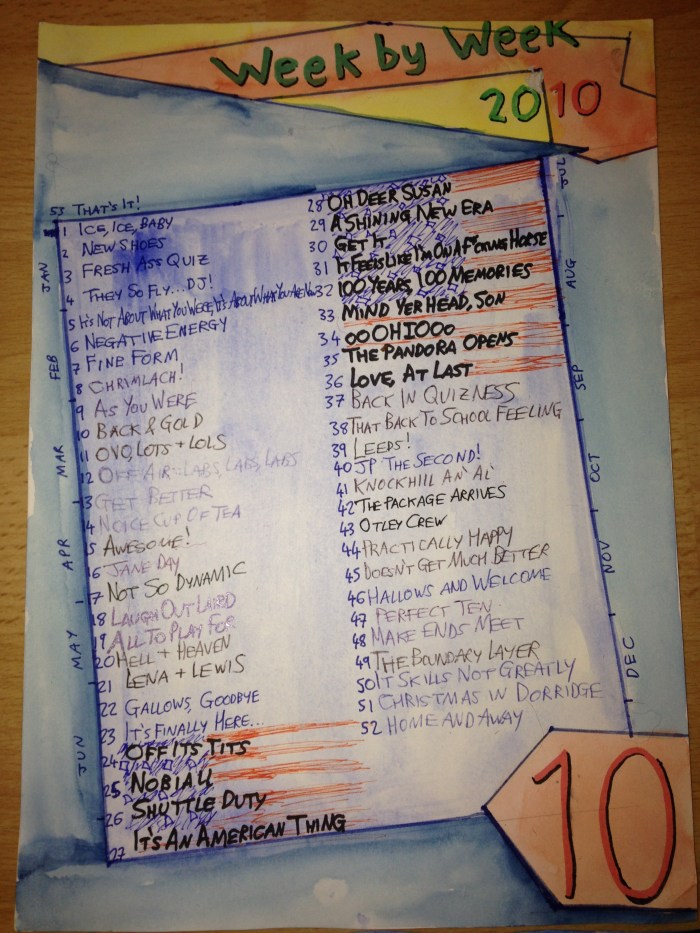 Week by Week
2010
53 THAT'S IT!
1 ICE, ICE, BABY
2 NEW SHOES
3 FRESH ASS QUIZ
4 THEY SO FLY...DJ!
5 IT'S NOT ABOUT WHAT YOU WERE, IT'S ABOUT WHAT YOU ARE NOW
6 NEGATIVE ENERGY
7 FINE FORM
8 CHRIMLACH!
9 AS YOU WERE
10 BACK & GOLD
11 OVO, LOTS + LOLS
12 OFF AIR - LABS, LABS, LABS
13 GET BETTER
14 NOICE CUP OF TEA
15 AWESOME!
16 JANE DAY
17 NOT SO DYNAMIC
18 LAUGH OUT
19 ALL TO PLAY FOR
20 HELL + HEAVEN
21 LENA + LEWIS
22 GALLOWS, GOODBYE
23 IT'S FINALLY HERE...
24 OFF ITS TITS
25
26 SHUTTLE DUTY
27 IT'S AN AMERICAN THING
28 OH DEER SUSAN
29 A SHINING NEW ERA
30 GET IT
31 IT FEELS LIKE I'M ON A F*CKING HORSE
32 100 YEARS, 100 MEMORIES
33 MIND YER HEAD, SON
34 OOOHIOOO
35 THE PANDORA OPENS
36 LOVE, AT LAST
37 BACK IN QUIZNESS
38 THAT BACK TO SCHOOL FEELING
39 LEEDS!
40 JP THE SECOND!
41 KNOCKHILL AN' AL'
42 THE PACKAGE ARRIVES
43 OTLEY CREW
44 PRACTICALLY HAPPY
45 DOESN'T GET MUCH BETTER
46 HALLOWS AND WELCOME
47 PERFECT TEN
48 MAKE ENDS MEET
49 THE BOUNDARY LAYER
50 IT SKILLS NOT GREATLY
51 CHRISTMAS IN DORRIDGE
52 HOME AND AWAY
JAN
FEB
MAR
APR
MAY
JUN
JUL
AUG
SEP
OCT
NOV
DEC
10